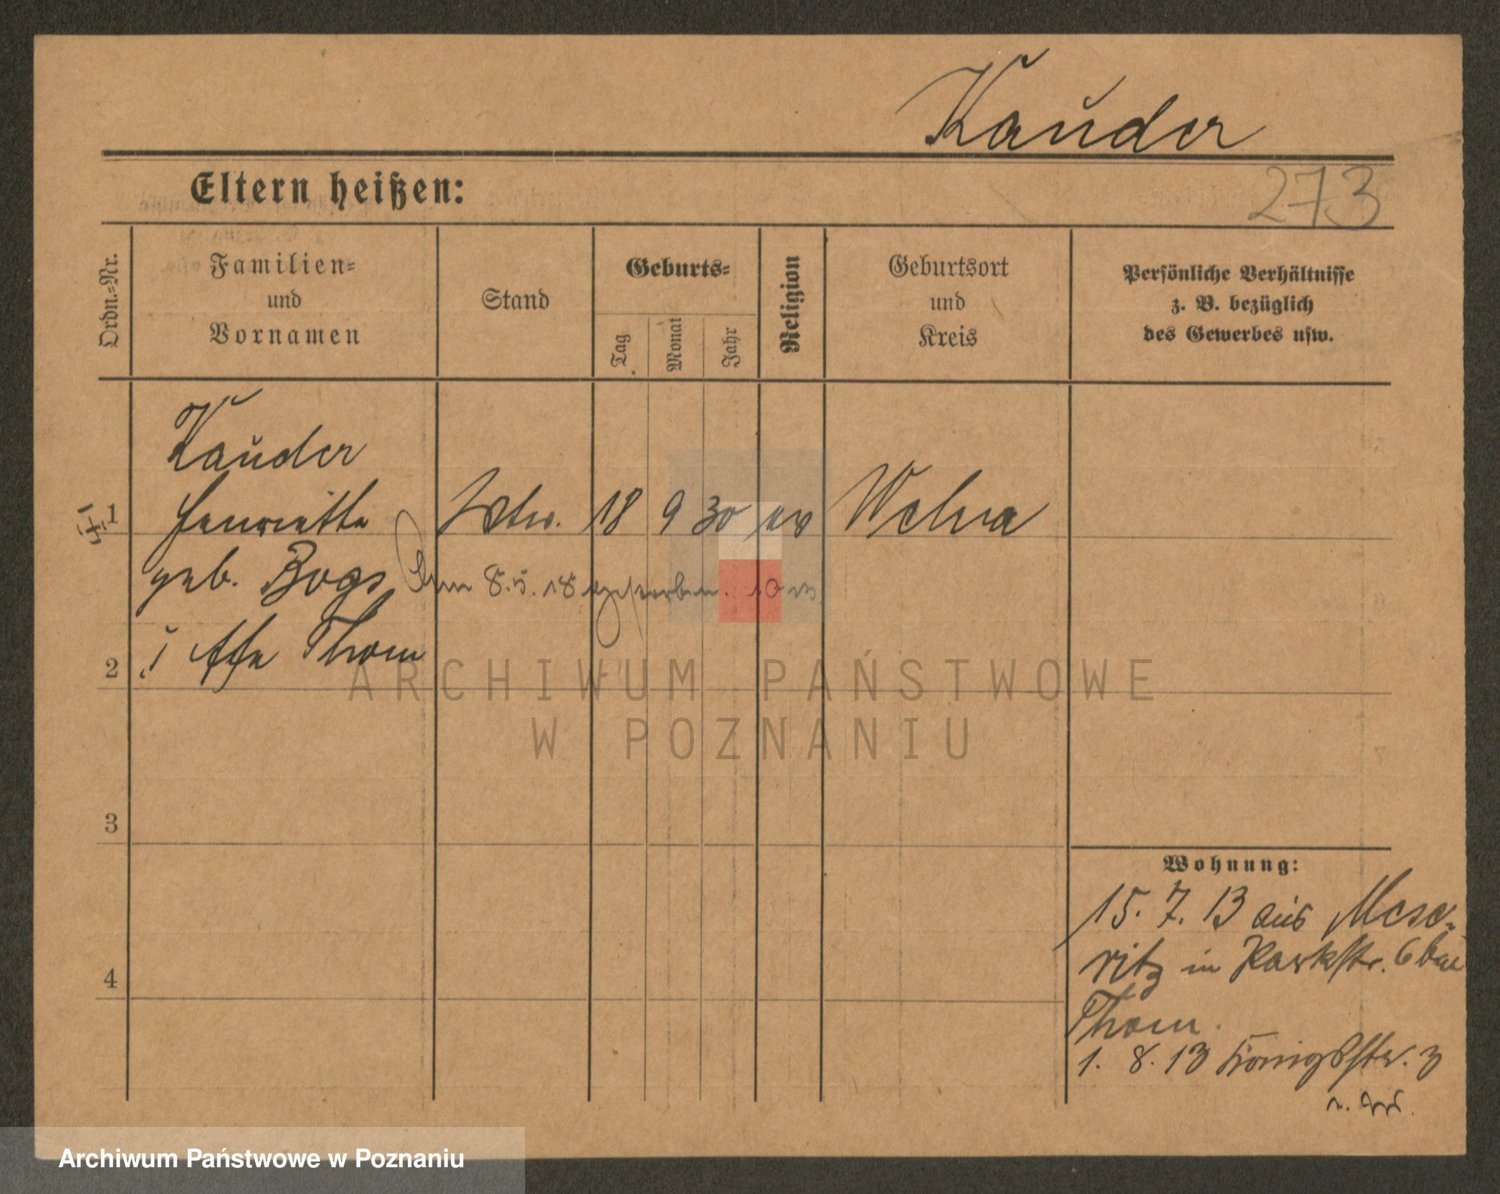 Kauder
Eltern heißen:
273
Ordn.=Nr.
Familien=
und
Vornamen
Stand
Geburts=
Tag
Monat
Jahr
Religion
Geburtsort
und
Kreis
Persönliche Verhältnisse
z. B. bezüglich
des Gewerbes usw.
Kauder
1 Henriette Wtw. 18 9 30 ev Welna
geb. Bogs
am 8.5.18 gestorben.
2 Thom
3
4
Wohnung:
15. 7. 13 aus Mese-
ritz in Parkstr. 6 bei
Thom.
1. 8. 13 Königstr. 3
ARCHIWUM PAŃSTWOWE
W POZNANIU
Archiwum Państwowe w Poznaniu